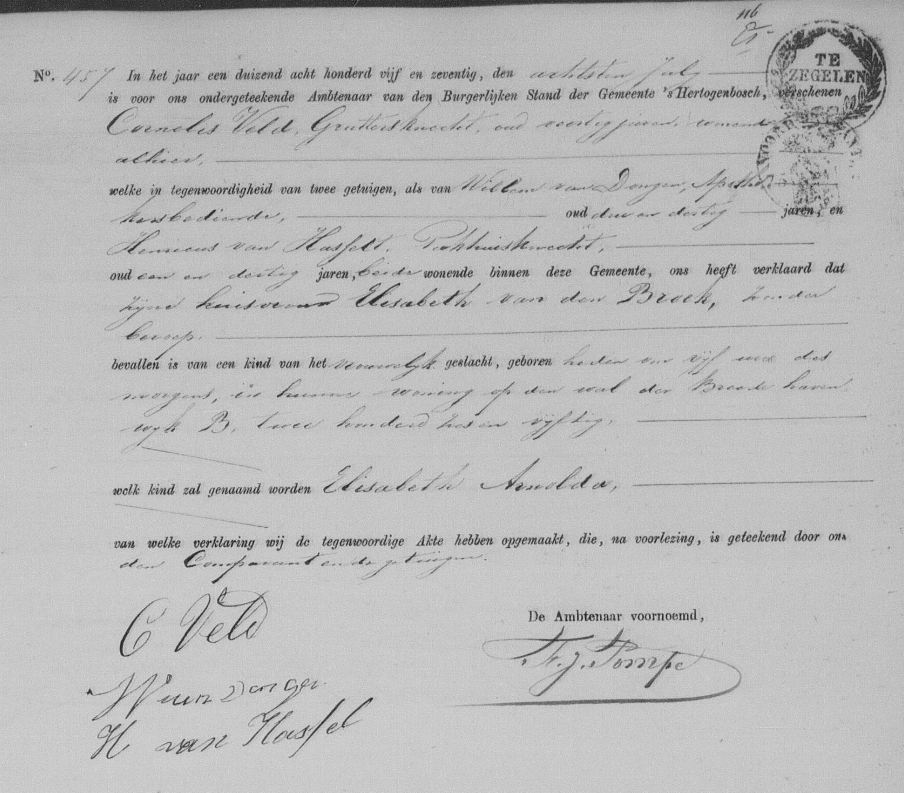 116
TE
ZEGELEN
N°. 457 In het jaar een duizend acht honderd vijf en zeventig, den achtsten July
is voor ons ondergeteekende Ambtenaar van den Burgerlijken Stand der Gemeente 's Hertogenbosch, verschenen
Cornelis Veld, Gruttersknecht, oud veertig jaren, wonende
alhier,
welke in tegenwoordigheid van twee getuigen, als van Willem van Dongen, Apothe-
kersbediende, oud drie en dertig jaren, en
Henricus van Hasselt, Pakhuisknecht,
oud een en dertig jaren, beide wonende binnen deze Gemeente, ons heeft verklaard dat
zijne huisvrouw Elisabeth van den Broek, zonder
beroep.
bevallen is van een kind van het vrouwelijk geslacht, geboren heden om vijf ure des
morgens, in hunne woning op den wal der Breede haven
wijk B, twee honderd zes en vijftig,
welk kind zal genaamd worden Elisabeth Arnolda,
van welke verklaring wij de tegenwoordige Akte hebben opgemaakt, die, na voorlezing, is geteekend door ons
den Comparant en de getuigen.
De Ambtenaar voornoemd,
C Veld
F. J. Pompe
W van Dongen
H van Hassel